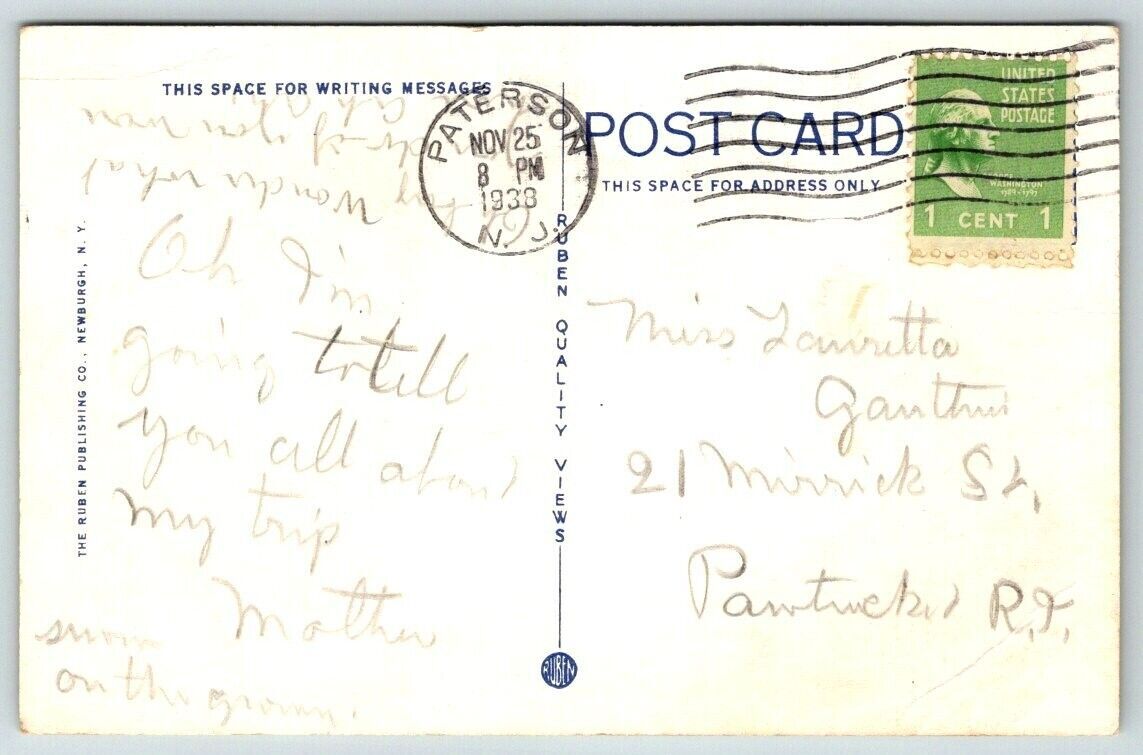 THIS SPACE FOR WRITING MESSAGES
PATERSON
NOV 25
8 PM
1938
N. J.
POST CARD
THIS SPACE FOR ADDRESS ONLY
UNITED
STATES
POSTAGE
WASHINGTON
1789-1797
1 CENT 1
Wonder what
of you now
Oh I'm
going to tell
you all about
my trip
Mother
snow
on the
Miss Lauretta
21 Mirrick St,
Pawtucket R.I.
THE RUBEN PUBLISHING CO., NEWBURGH, N. Y.
RUBEN QUALITY VIEWS
RUBEN